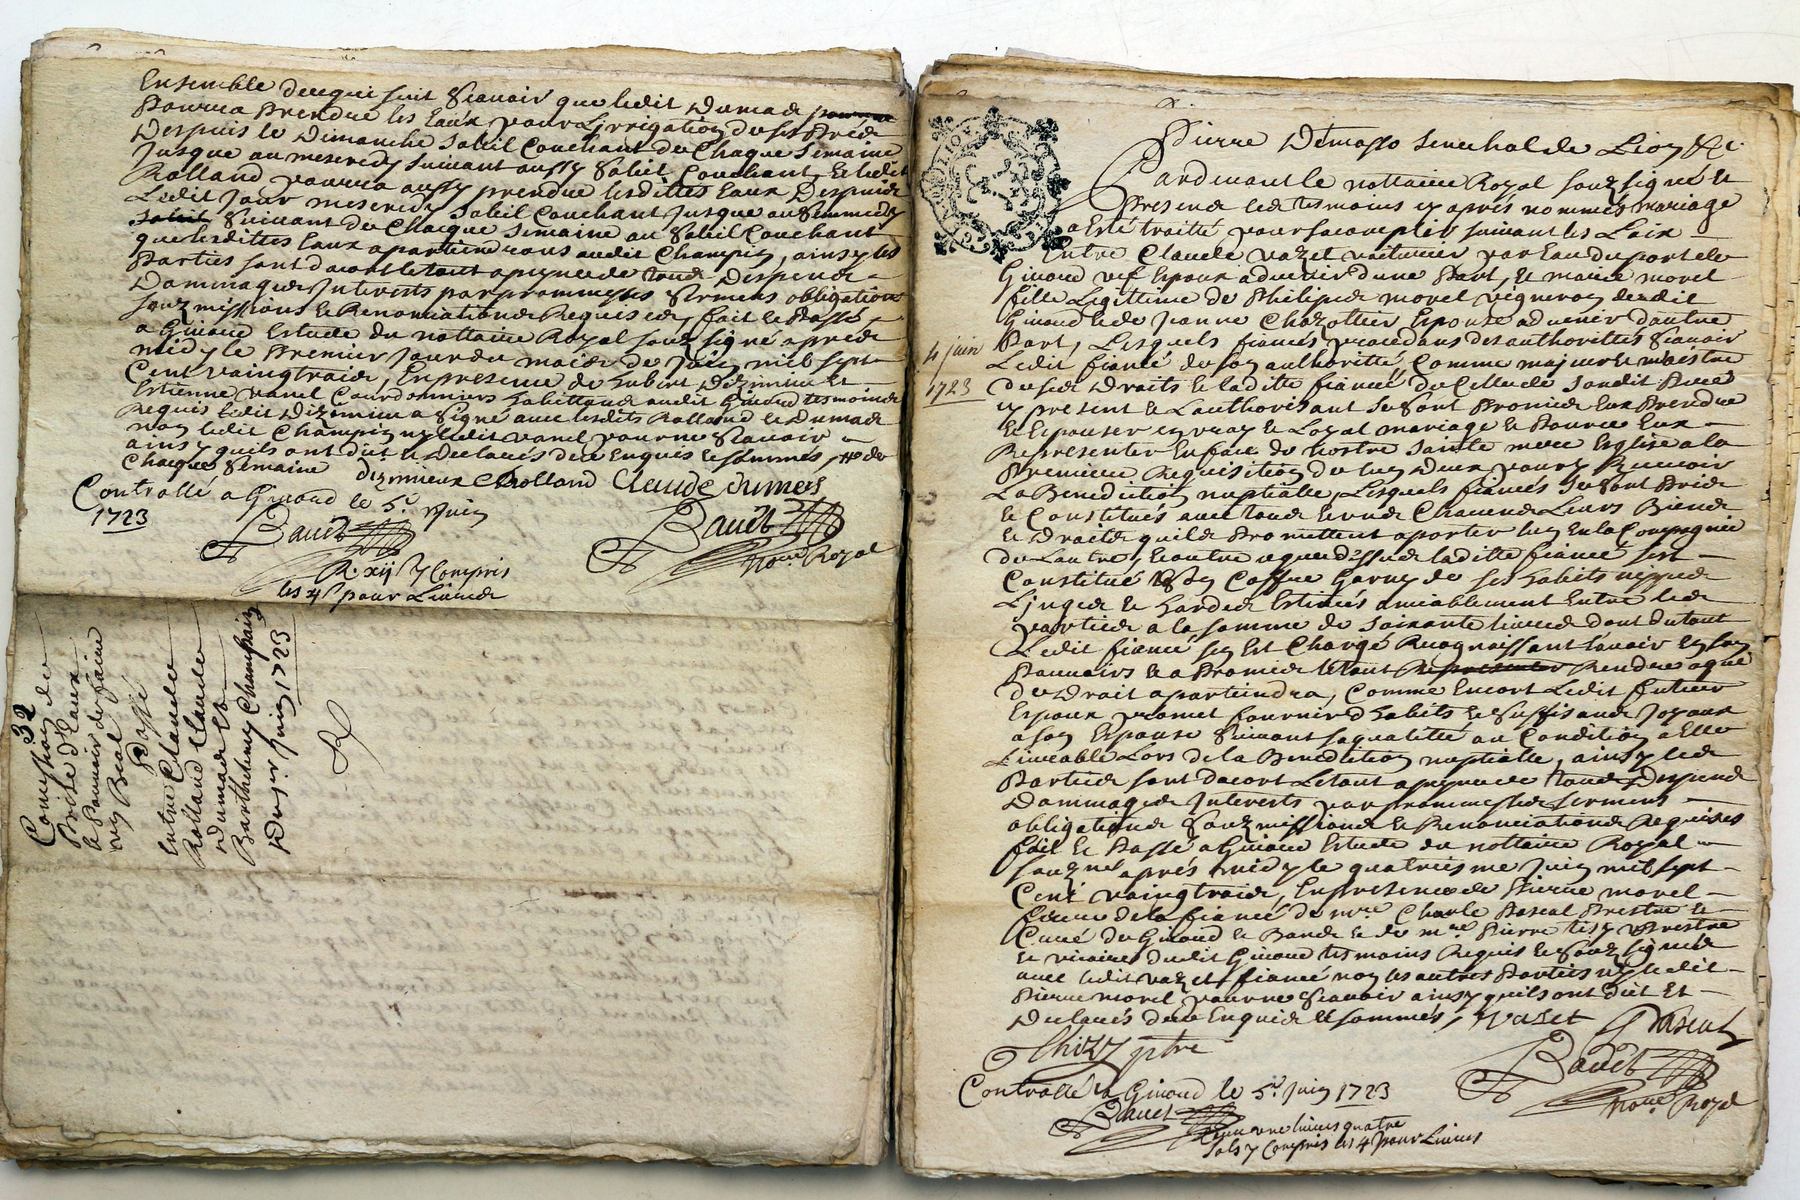 Ensemble de ce qui suit scavoir que ledit dumas
Pourra Prendre les Eaux pour L'irrigation de ses Prés
Despuis le Dimanche Soleil Couchant de Chaque Semaine
Jusque au mescredy suivant aussy Soleil Couchant, et ledit
Rolland pourra aussy prendre lesdittes Eaux Despuis
Ledit Jour mescredy Soleil Couchant Jusque au
suivant de Chaque Semaine au Soleil Couchant
que lesdittes Eaux apartiendront audit Champin, ainsy les
Parties sont dacort le tout a peyne de tous Despens
Dommages Interets par prommesses sermens obligations
souzmissions et Renonciations Requises, fait et Passé
a Givord Estude du nottaire Royal souzsigné apres
midy le Premier Jour du mois de Juin mil sept
Cent vaingtrois, En presence de hubert dizimieu et
Estienne vanel Courdonniers habittans audit Givord tesmoins
Requis ledit Dizimieu a signé avec lesdits Rolland et Dumas
non ledit Champin ny ledit vanel pour ne scavoir
ainsy quils ont dit et Declarés de ce Enquis et sommés,
Chaque Semaine dizimieux CRolland Claude dumas
Controllé a Givord le 5e. Juin
1723
Baudt Baudt
R. xij s y Compris notre. Royal
les 4 s pour Livres
32
Convention de
Prise d'Eaux
Passé
Entre Claude
Rolland Claude
dumas et
Barthelemy Champain
Du 1er Juin 1723
Pierre Demasso senechal de Lion &c.
Pardevant le nottaire Royal souzsigné et
Presens les tesmoins cy aprés nommés mariage
a Esté traitté pour sacomplir suivant les Loix
Entre Claude vazet voiturier par Eau du port de
Givord Espoux advenir d'une Part, et marie morel
fille Legittime de Philipe morel vigneron dudit
Givord et de Jeanne Chazottier Espouse advenir d'autre
Part, Lesquels fiancés procedans des authorittés scavoir
4 juin
Ledit fiancé de son authoritté, Comme majeur et maistre
1723
de ses Droits et laditte fiancée de Celle de sondit Pere
cy present et Lauthorisant se sont Promis Eux Prendre
et Espouser en vray et Loyal mariage et Pource Eux
Representer En face de nostre Sainte mere Eglise a la
Premiere Requisition de lun deux pour y Recevoir
La Benediction nuptialle, Lesquels fiancés se sont
et Constitués avec tous et uns Chacuns Leurs Biens
et Droits quils Promettent aporter En la Compagnie
de Lautre, Et outre a que dessus laditte fiancée sest
Constitué son Coffre Garny de ses habits
Linges et hardes Estimés amiablement Entre les
parties a la somme de soixante livres dont du tout
Ledit fiancé sen est Chargé Recognoissant lavoir en son
Pouvoirs et a Promis le tout Representer Rendre a qui
de Droit apartiendra, Comme Encort Ledit futur
Espoux promet fournir d'habits et suffisans Joyaux
a son Espouse suivant sa qualitté ou Condition a Elle
Livreable Lors de la Benediction nuptialle, ainsy les
Parties sont dacort Le tout a peyne de tous Despens
Dommages Interets par prommesses sermens
obligations souzmissions et Renonciations Requises
fait et Passé a Givord Estude du nottaire Royal
souzné aprés midy le quatriesme Juin mil sept
Cent vaingtrois, En presence de Pierre morel
frere de la fiancée de mre Charle Pascal Prestre et
Curé de Givord et Bans et de mre Pierre Prestre
et vicaire dudit Givord tesmoins Requis et souzsignés
avec ledit vazet fiancé non les autres Parties ny ledit
Pierre morel pour ne scavoir ainsy quils ont dit et
Declarés de ce Enquis et sommés, Vazet Pascal
ptre Baudt
Controllé a Givord le 5e. Juin 1723
Baudt notre. Royal
Reçu une livres quatre
sols y Compris les 4 s pour Livres